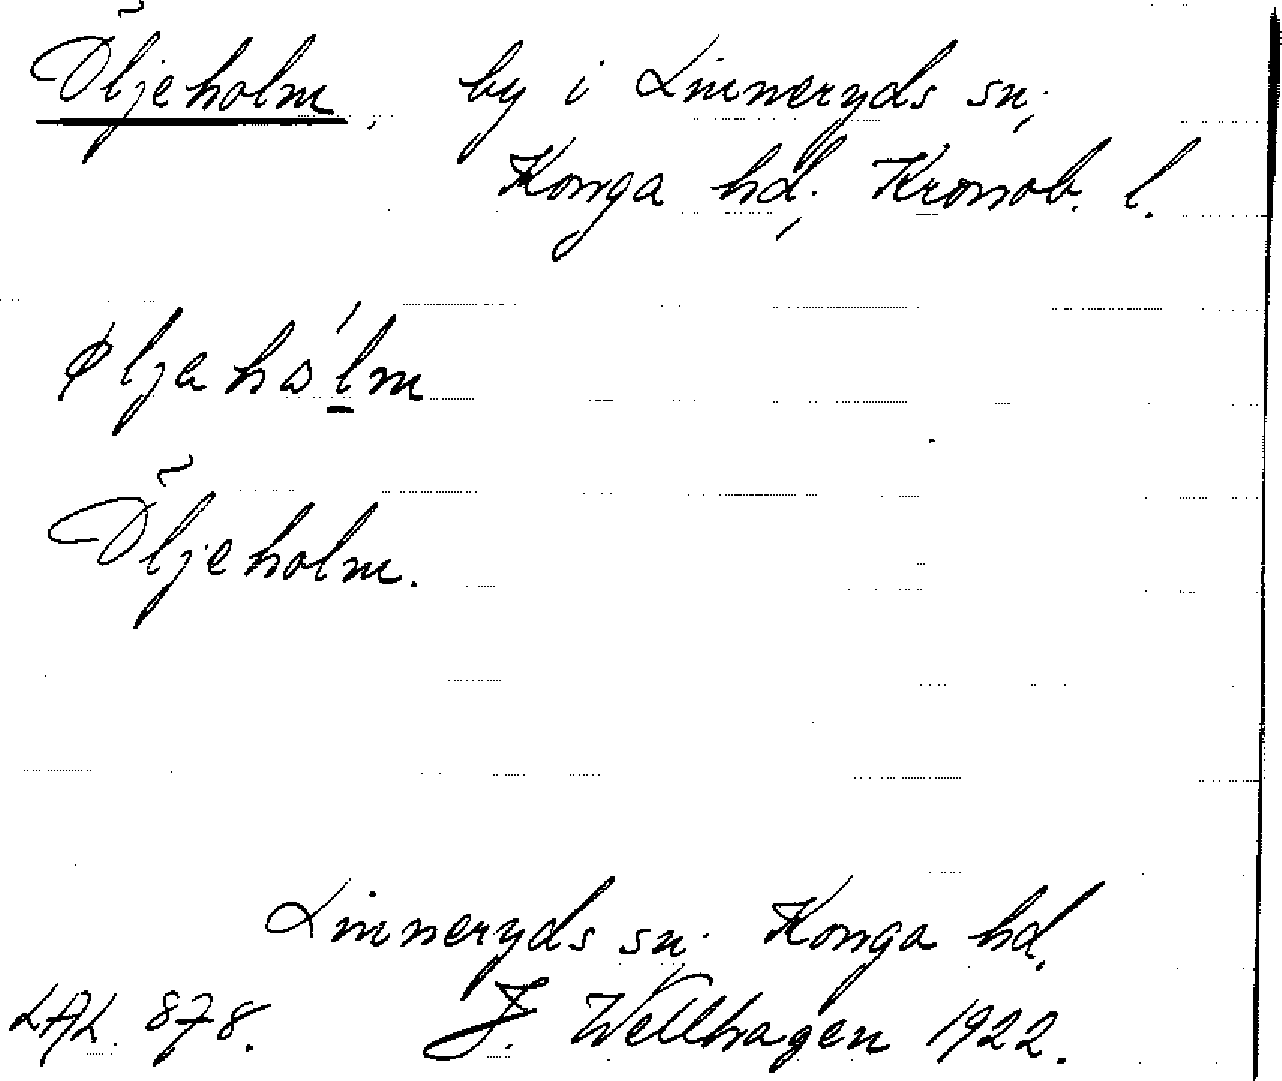 Öljeholm, by i Linneryds sn,
Konga hd, Kronob. l.
øljahólm
Öljeholm.
Linneryds sn. Konga hd.
LAL. 878. J. Wellhagen 1922.